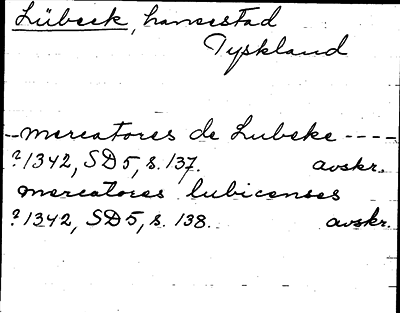 Lübeck, hansestad
Tyskland
--mercatores de Lubeke ----
?1342, SD 5, s. 137. avskr.
mercatores lubicenses
?1342, SD 5, s. 138. avskr.